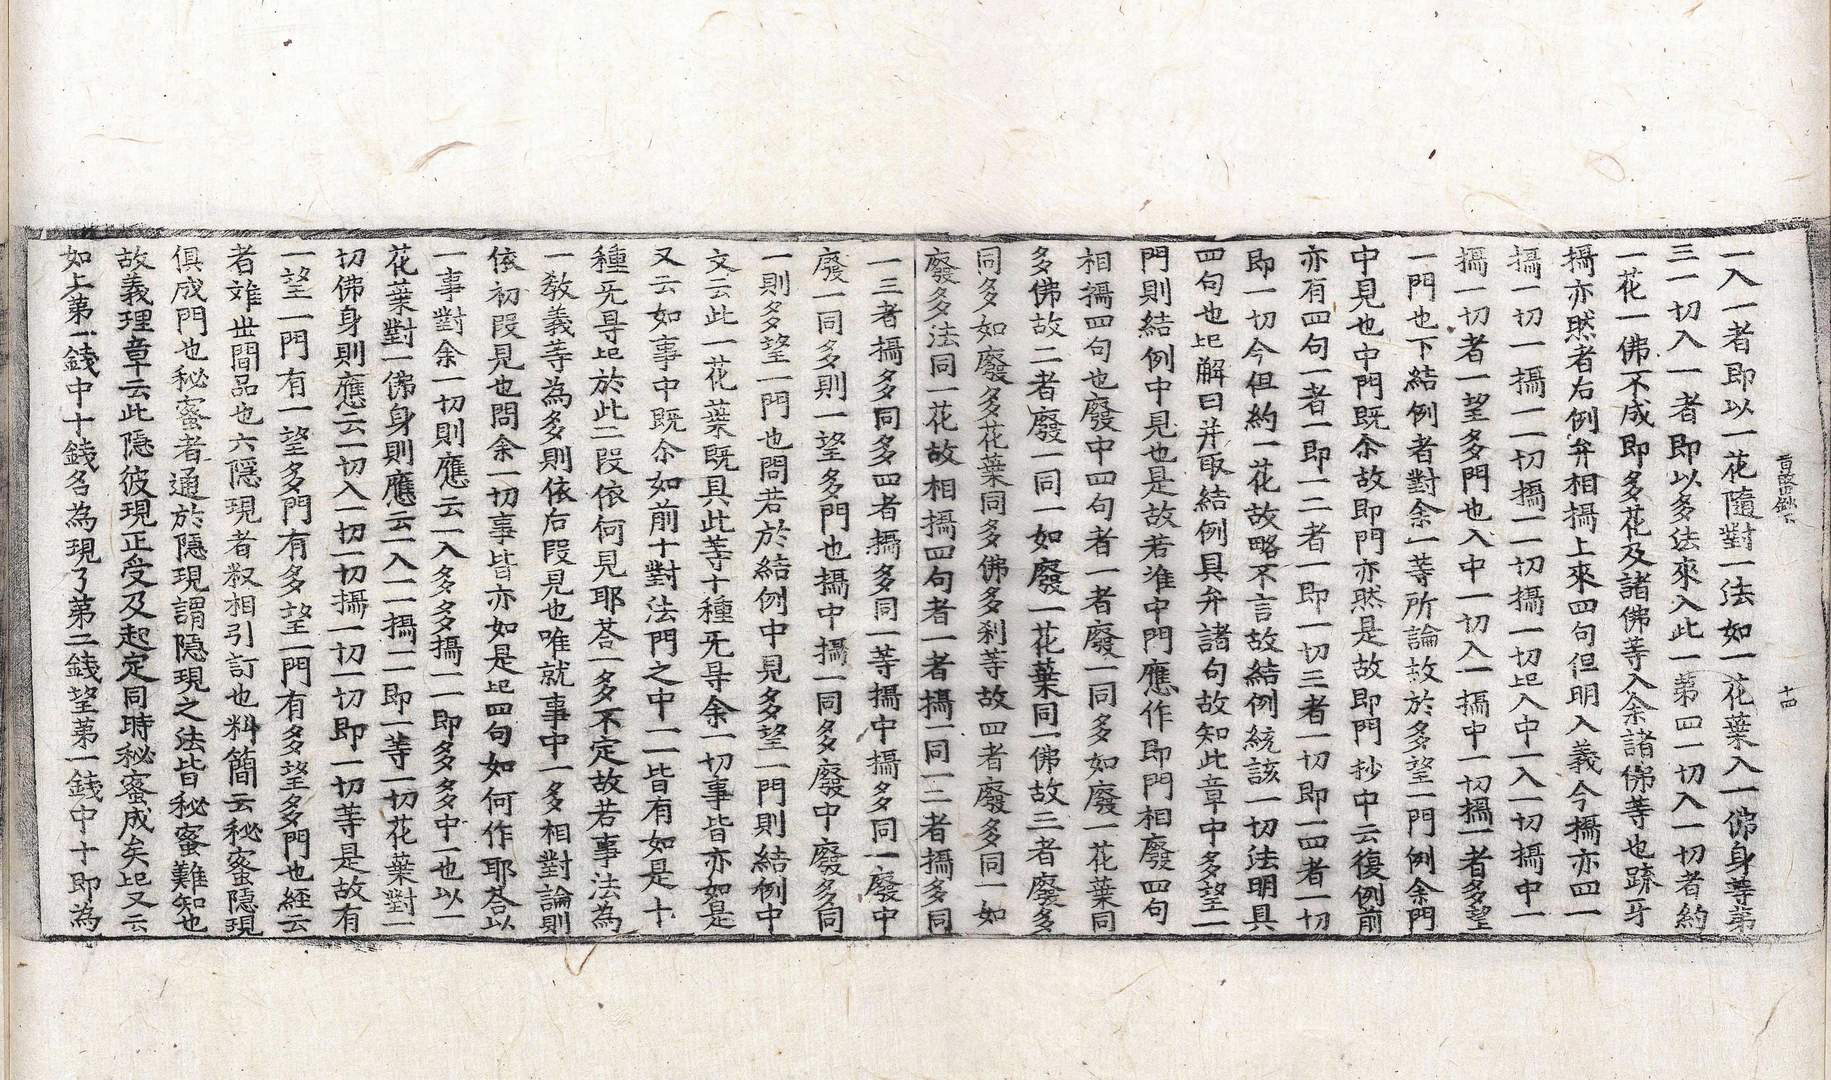 十四
一入一者即以一花隨對一法如一花葉入一佛身等第
三一切入一者即以多法來入此一第四一切入一切者約
一花一佛不成即多花及諸佛等入余諸佛等也䟽牙
攝亦然者右例弁相攝上來四句但明入義今攝亦四一
攝一切一攝一二切攝一二切攝一切已入中一入一切攝中一
攝一切者一望多門也入中一切入一攝中一切攝一者多望
一門也下結例者對余一等所論故於多望一門例余門
中見也中門既尒故即門亦然是故即門抄中云復例前
亦有四句一者一即一二者一即一切三者一切即一四者一切
即一切今但約一花故略不言故結例統該一切法明具
四句也已解曰并取結例具弁諸句故知此章中多望一
門則結例中見也是故若准中門應作即門相廢四句
相攝四句也廢中四句者一者廢一同多如廢一花葉同
多佛故二者廢一同一如廢一花葉同一佛故三者廢多
同多如廢多花葉同多佛多刹等故四者廢多同一如
廢多法同一花故相攝四句者一者攝一同一二者攝多同
一三者攝多同多四者攝多同一等攝中攝多同一廢中
廢一同多則一望多門也攝中攝一同多廢中廢多同
一則多望一門也問若於結例中見多望一門則結例中
文云此一花葉既具此等十種旡㝵余一切事皆亦如是
又云如事中既尒如前十對法門之中一一皆有如是十
種旡㝵已於此二段依何見耶荅一多不定故若事法為
一教義等為多則依后段見也唯就事中一多相對論則
依初段見也問余一切事皆亦如是已四句如何作耶荅以
一事對余一切則應云一入多多攝一一即多多中一也以一
花葉對一佛身則應云一入一一攝一一即一等一切花葉對一
切佛身則應云一切入一切一切攝一切一切即一切等是故有
一望一門有一望多門有多望一門有多望多門也經云
者䧹世間品也六隱現者叙相引訂也料簡云秘蜜隱現
俱成門也秘蜜者通於隱現謂隱現之法皆秘蜜難知也
故義理章云此隱彼現正受及起定同時秘蜜成矣已又云
如上第一錢中十錢名為現了第二錢望第一錢中十即為